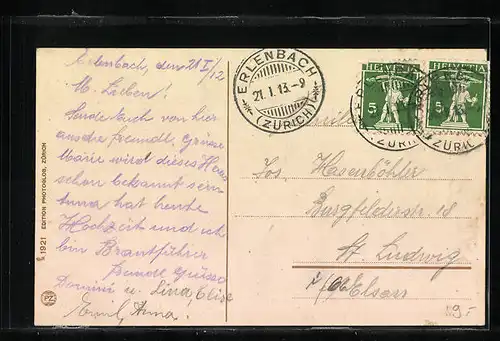 Erlenbach, den 21 I/12
M. Lieben!
Sende Euch von hier
aus die freundl. Grüsse
wird dieses Haus
schon bekannt sein
Anna hat heute
Hochzeit und ich
bin Brautführer
Grüsse
Domini u. Lina, Elise
Emil, Anna!
№ 1921 EDITION PHOTOGLOB, ZÜRICH
PZ
ERLENBACH
21.I.13.-9
(ZÜRICH)
HELVETIA
5
HELVETIA
5
(ZÜRICH)
Jos. Hasenböhler
Burgfelderstr. 18
St. Ludwig
Elsass
9.-